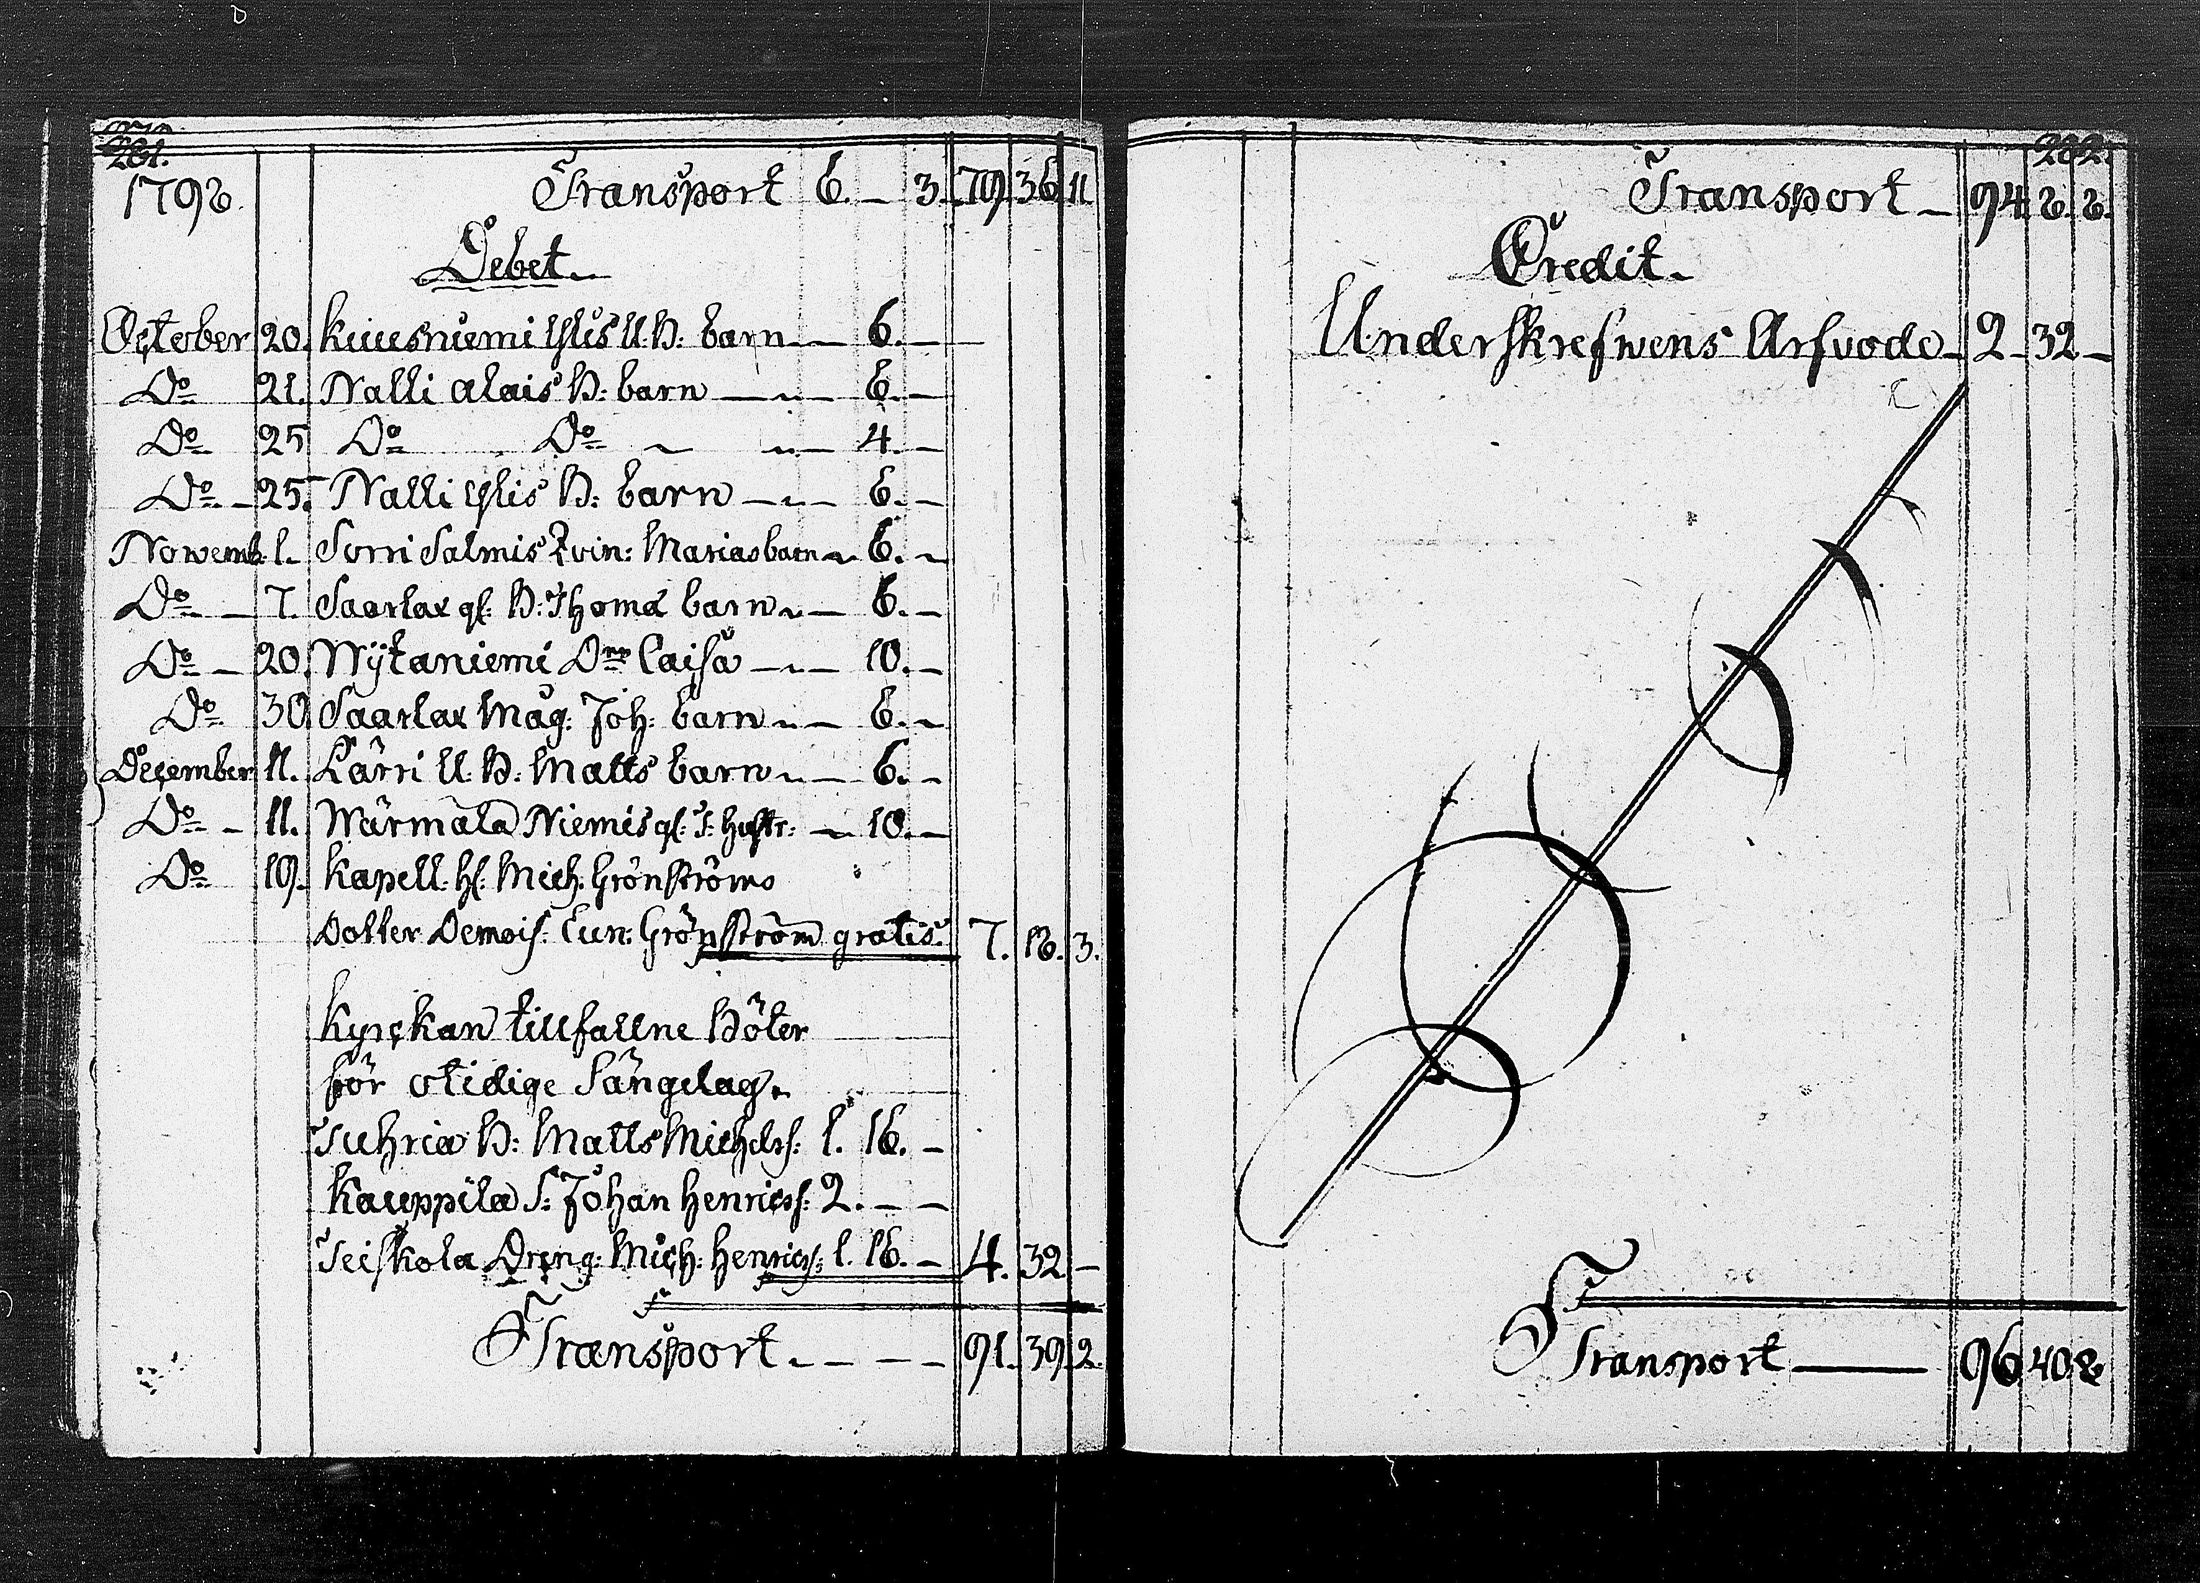 281.
1798. Transport 6. — 3. 79. 36. 11
Debet.
October 20. Kuusniemi Ylis U. B: barn — 6. —
Do 21. Nalli Alais B: barn — „ — 6. —
Do 25 Do Do ~ „ — 4. —
Do — 25. Nalli Ylis B: barn — „ — 6. —
Novemb. 1. Sorri Salmis Qvin: Marias barn — 6. —
Do — 7. Saarlax gl: B: Thomæ barn „ — 6. —
Do — 20. Wijtaniemi Caisa — „ — 10. —
Do 30. Saarlax Mag: Joh: barn „ — 6. —
December 11. Kärri U. B: Matts barn „ — 6. —
Do — 11. Wärmälä Niemis gl: S: Hustr: — 10. —
Do 19. Kapell: H: Mich. Grönströms
Dotter Demois: Eun: Grönström gratis. 7. 18. 3.
Kyrckan tillfallne Böter
för otidige Sängelag.
Suhria B: Matts Michelss: 1. 16. —
Kauppila S: Johan Henricss: 2. — —
Teiskola Dreng: Mich: Henricss: 1. 16. — 4. 32 —
Transport. — — — 91. 39. 2.
282.
Transport — 94. 8. 8.
Credit.
Underskrefwens Arfvode — 2 — 32 —
Transport — 96. 40. 8.